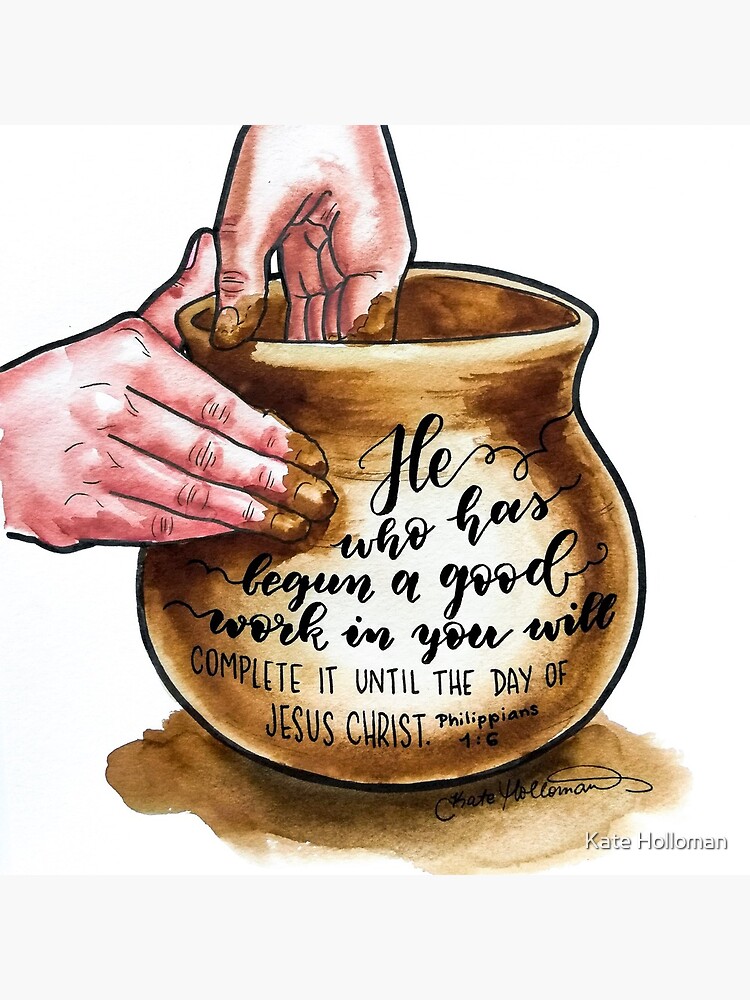 He
who has
begun a good
work in you will
COMPLETE IT UNTIL THE DAY OF
JESUS CHRIST. Philippians
1:6
Kate Holloman
Kate Holloman